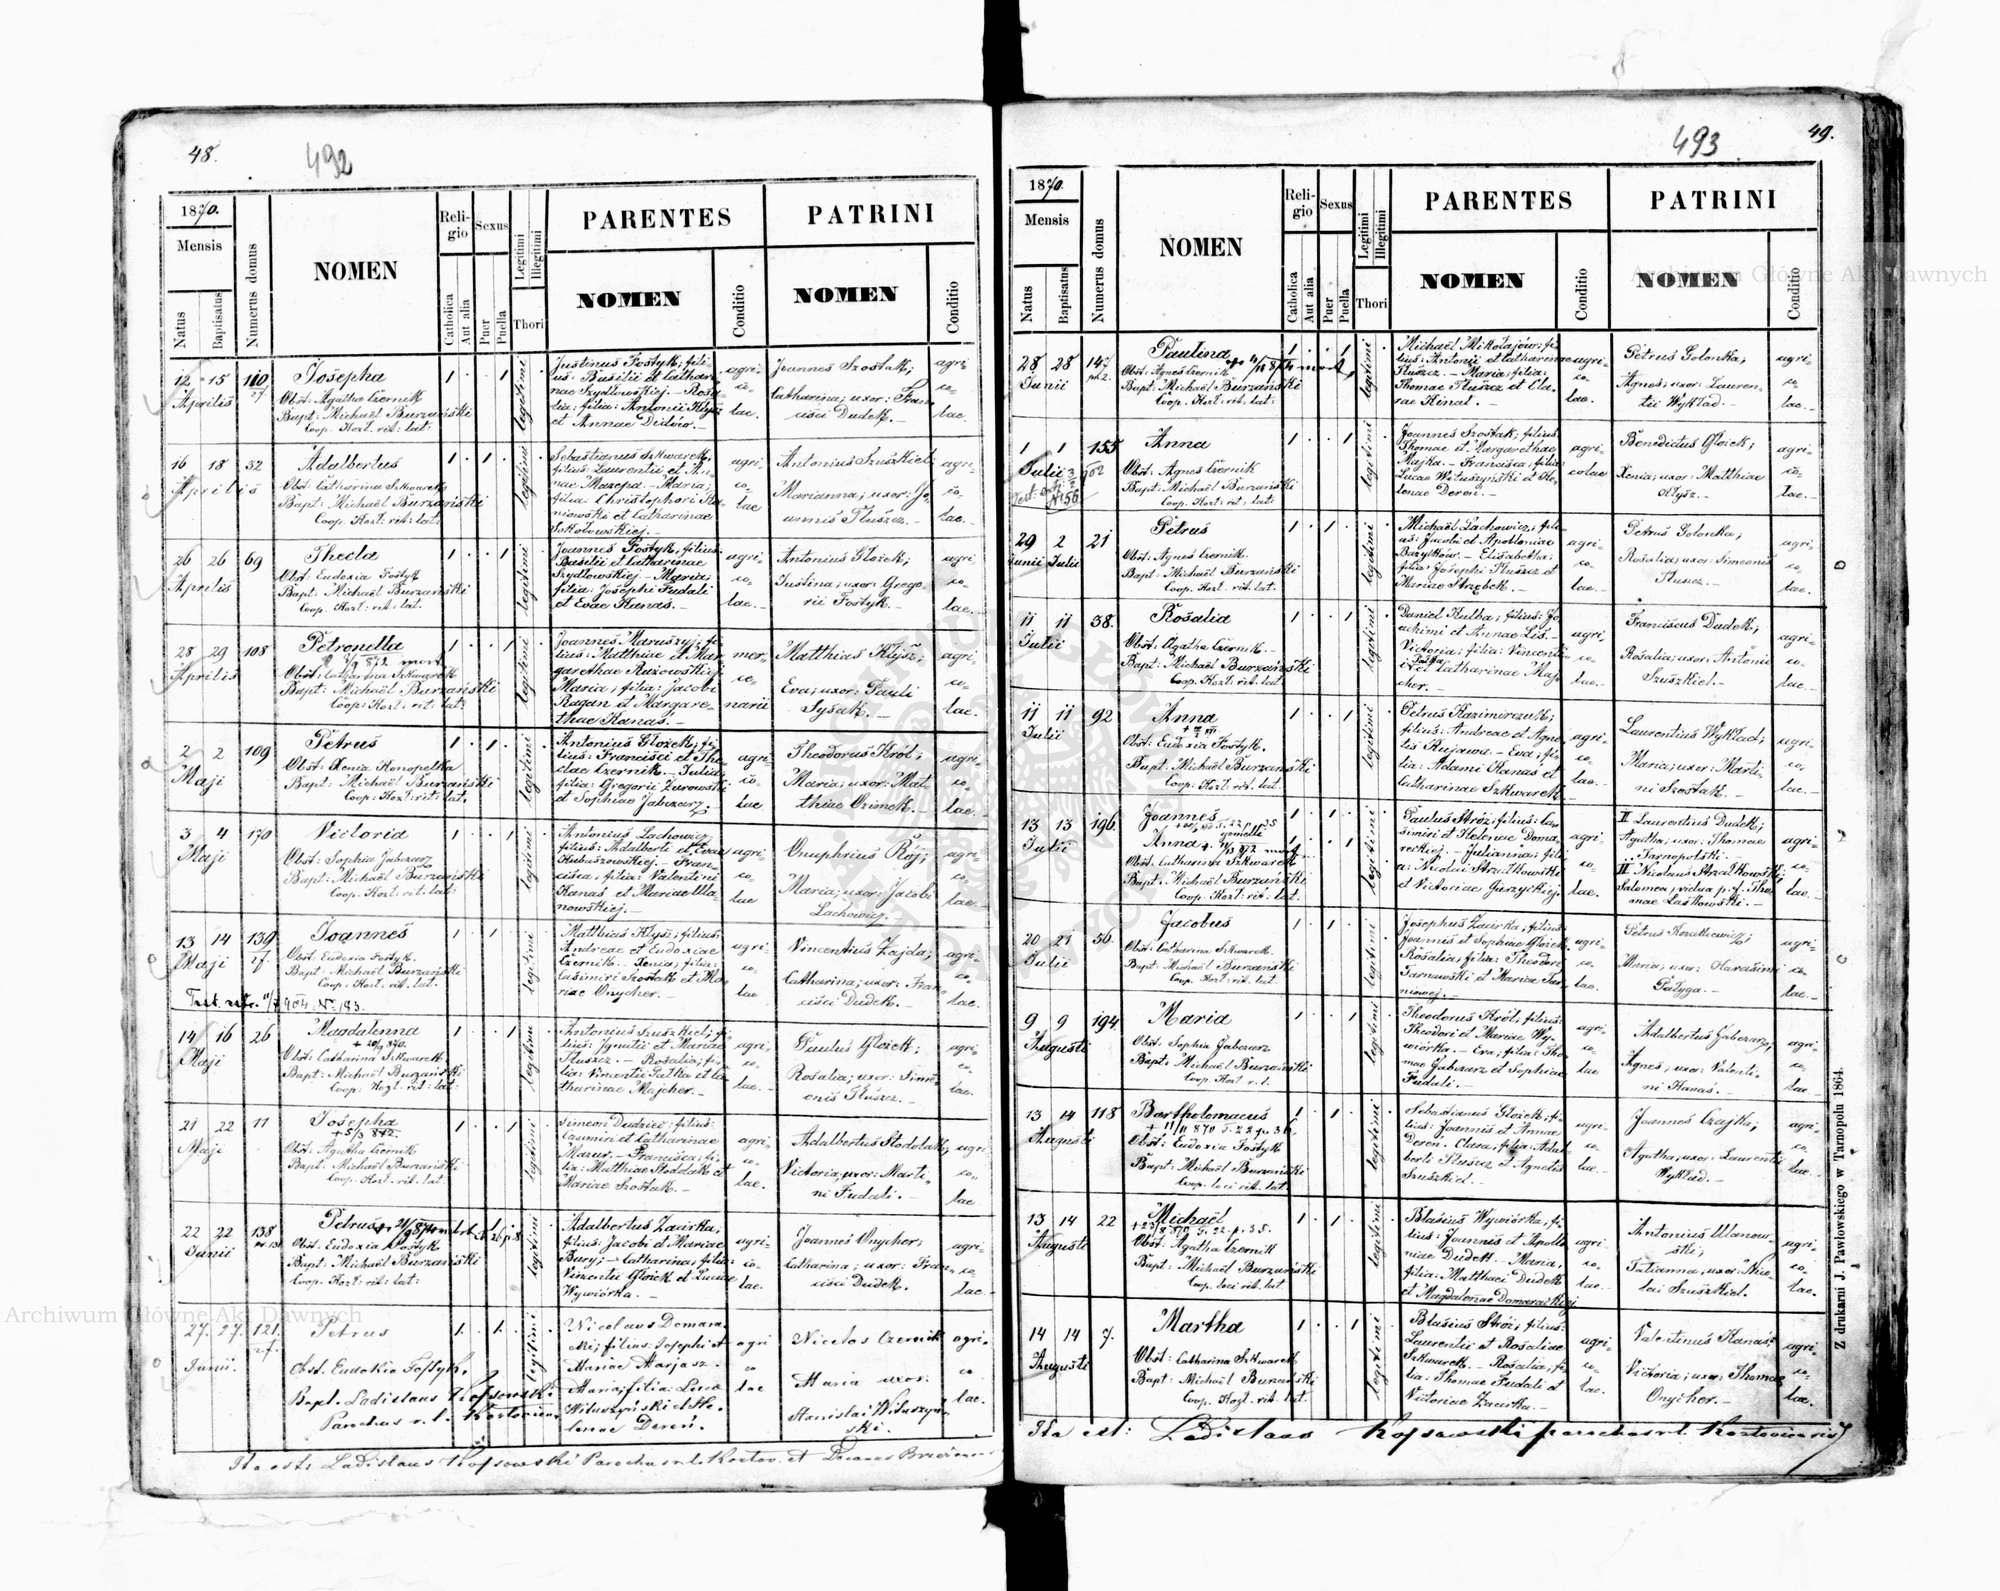 48.
492
1870.
Mensis
Natus
Baptisatus
Numerus domus
NOMEN
Reli-
gio
Catholica
Aut alia
Sexus
Puer
Puella
Legitimi
Illegitimi
Thori
PARENTES
NOMEN
Conditio
PATRINI
NOMEN
Conditio
12 15 110 Josepha 1 1 legitimi
Aprilis
Obst: Agatha Czernik
Bapt: Michaël Burzański
Coop. Kozl. rit: lat:
Justinus Fostyk; fili-
us: Basilii et Cathari-
nae Szydłowskiej. - Rosa-
lia: filia: Antonii Kłysz
et Annae
agri-
co-
lae.
Joannes Szostak;
Catharina; uxor: Fran-
cisci Dudek. -
agri-
co-
lae
16 18 32 Adalbertus 1 1 legitimi
Aprilis
Obst: Catharina Szkwarek
Bapt: Michaël Burzański
Coop. Kozl: rit: lat:
Sebastianus Szkwarek;
filius: Laurentii et An-
nae Mazepa. - Maria;
filia: Christophori
et Catharinae
Sokołowskiej. -
agri-
co-
lae
Antonius Szuszkiel;
Marianna; uxor: Jo-
annis Tłuszcz. -
agri-
co-
lae. -
26 26 69 Thecla 1 1 legitimi
Aprilis
Obst: Eudoxia Fostyk
Bapt: Michaël Burzański
Coop. Kozl: rit: lat.
Joannes Fostyk, filius:
Basilii et Catharinae
Szydłowskiej - Maria;
filia: Josephi Fudali
et Evae Kanas. -
agri-
co-
lae. -
Antonius Głożek;
Justina; uxor: Grego-
rii Fostyk. -
agri-
co-
lae. -
28 29 108 Petronella 1 1 legitimi
Aprilis
872 mort
Obst: Catharina Szkwarek
Bapt: Michaël Burzański
Coop: Kozl: rit: lat:
Joannes Maruszyj; fi-
lius: Matthiae et Mar-
garethae
Maria; filia: Jacobi
Ragan et Margare-
thae Kanas. -
mer-
ce-
narii
Matthias Kłysz;
Eva; uxor: Pauli
Sysak. -
agri-
co-
lae.
2 2 109 Petrus 1 1 legitimi
Maji
Obst: Xenia Konopelka
Bapt: Michaël Burzański
Coop: Kozl: rit: lat.
Antonius Głożek; fi-
lius: Francisci et The-
clae Czernik. - Julia;
filia: Gregorii Żurowski
et Sophiae Jabczarz. -
agri-
co-
lae
Theodorus Król;
Maria; uxor: Mat-
thiae Ozimek. -
agri-
co-
lae.
3 4 170 Victoria 1 1 legitimi
Maji
Obst: Sophia Jabczarz
Bapt: Michaël Burzański
Coop. Kozl: rit: lat:
Antonius Lachowicz
filius: Adalberti et Evae
- Fran-
cisca; filia: Valentini
Kanas et Mariae Ula-
nowskiej. -
agri-
co-
lae
Onuphrius Rój;
Maria; uxor: Jacobi
Lachowicz.
agri-
co-
lae.
13 14 139 Joannes 1 1 legitimi
Maji
Obst: Eudoxia Fostyk.
Bapt: Michaël Burzański
Coop: Kozl: rit. lat.
904 N. 183.
Matthias Kłysz; filius:
Andreae et Eudoxiae
Czernik. - Xenia; filia:
Casimiri Szostak et Ma-
riae Onycher. -
agri-
co-
lae
Vincentius Zajda;
Catharina; uxor: Fran-
cisci Dudek. -
agri-
co-
lae.
14 16 26 Magdalenna 1 1 legitimi
Maji
Obst: Catharina Szkwarek
Bapt: Michaël Burzański
Coop: Kozl: rit: lat:
Antonius Szuszkiel; fi-
lius: Ignatii et Mariae
Tłuszcz. - Rosalia; fi-
lia: Vincentii Gałka et Ca-
tharinae Majcher. -
agri-
co-
lae. -
Paulus Głożek;
Rosalia; uxor: Sime-
onis Tłuszcz. -
agri-
co-
lae.
21 22 11 Josepha 1 1 legitimi
Maji
+ 5/3 872.
Obst: Agatha Czernik
Bapt: Michaël Burzański
Coop. Kozl: rit: lat.
Simeon Dudziec; filius:
Casimiri et Catharinae
Mazur. - Francisca; fi-
lia: Matthiae Stodolak et
Mariae Szostak. -
agri-
co-
lae.
Adalbertus Stodolak;
Victoria; uxor: Marti-
ni Fudali. -
agri-
co-
lae
22 22 138 Petrus 1 1 legitimi
Junii
Obst. Eudoxia Fostyk
Bapt: Michaël Burzański
Coop: Kozl: rit: lat:
Adalbertus Zaurka;
filius: Jacobi et Mariae
Bury; - Catharina; filia:
Vincentii Głożek et Luciae
Wywiórka. -
agri-
co-
lae.
Joannes Onycher;
Catharina; uxor: Fran-
cisci Dudek.
agri-
co-
lae.
27. 27. 121. Petrus 1. 1. legitimi
Junii.
Obst. Eudokia Fostyk.
Bapt. Ladislaus Kossowski
Parochus r. l.
Nicolaus Domara-
cki; filius: Josephi et
Mariae Marjasz.
Maria; filia: Lucae
Wituszyński et He-
lenae Dereń.
agri
co
lae
Nicetas Czernik
Maria uxor.
Stanislai Wituszyń-
ski.
agri-
co
lae.
Ita est: Ladislaus Kossowski Parochus r. l. Kozłov. et Decanus
49.
493
1870.
Mensis
Natus
Baptisatus
Numerus domus
NOMEN
Reli-
gio
Catholica
Aut alia
Sexus
Puer
Puella
Legitimi
Illegitimi
Thori
PARENTES
NOMEN
Conditio
PATRINI
NOMEN
Conditio
28 28 147 Paulina 1 1 legitimi
Junii
Obst: Agnes Czernik
Bapt: Michaël Burzański
Coop. Kozl: rit: lat:
Michaël Mikołajów; fi-
lius: Antonii et Catharinae
Tłuszcz. - Maria; filia:
Thomae Tłuszcz et Cla-
rae Kinal. -
agri-
co-
lae.
Petrus Golonka;
Agnes; uxor: Lauren-
tii Wykład. -
agri-
co-
lae. -
1 1 155 Anna 1 1 legitimi
Julii
Obst: Agnes Czernik
Bapt: Michaël Burzański
Coop. Kozl: rit: lat:
Joannes Szostak; filius:
Thomae et Margarethae
Majka. - Francisca; filia:
Lucae Wituszyński et He-
lenae Dereń. -
agri-
colae
Benedictus Głożek;
Xenia; uxor: Matthiae
Kłysz. -
agri-
co-
lae.
29 2 21 Petrus 1 1 legitimi
Junii Julii
Obst: Agnes Czernik.
Bapt: Michaël Burzański
Coop. Kozl: rit: lat:
Michaël Lachowicz; fili-
us: Jacobi et Apolloniae
Bazylków. - Elisabetha;
filia: Josephi Tłuszcz et
Mariae Strzębek. -
agri-
co-
lae.
Petrus Golonka;
Rosalia; uxor: Simeonis
Tłuszcz. -
agri-
co-
lae.
11 11 38. Rosalia 1 1 legitimi
Julii
Obst: Agatha Czernik. -
Bapt: Michaël Burzański
Coop. Kozl: rit: lat.
Daniel Kulba; filius: Jo-
achimi et Annae Lis. -
Victoria; filia: Vincenti-
i et Catharinae Maj-
cher. -
agri-
co-
lae. -
Franciscus Dudek;
Rosalia; uxor: Antonii
Szuszkiel. -
agri-
co-
lae.
11 11 92 Anna 1 1 legitimi
Julii
Obst: Eudoxia Fostyk.
Bapt: Michaël Burzański
Coop: Kozl: rit: lat.
Petrus Kazimirczuk;
filius: Andreae et Agne-
tis Kujawa. - Eva; fi-
lia: Adami Kanas et
Catharinae Szkwarek. -
agri-
co-
lae.
Laurentius Wykład;
Maria; uxor: Marti-
ni Szostak. -
agri-
co-
lae.
13 13 196 Joannes 1 1 legitimi
Julii
gemelli
Anna 1 1
Obst: Catharina Szkwarek
Bapt: Michaël Burzański
Coop. Kozl: rit: lat.
Paulus Stróż; filius: Ca-
simiri et Helenae Doma-
reckiej. - Julianna; fili-
a: Nicolai Strzałkowski
et Victoriae Garzyckiej.
agri-
co-
lae.
I Laurentius Dudek;
Agatha; uxor: Thomae
Tarnopolski.
II Nicolaus Strzałkowski;
Salomea, vidua p. f. Tho-
mae Laskowski. -
agri-
co-
lae. -
20 21 56. Jacobus 1 1 legitimi
Julii
Obst: Catharina Szkwarek.
Bapt: Michaël Burzański
Coop. Kozl: rit. lat.
Josephus Zaurka; filius:
Joannis et Sophiae Głożek.
Rosalia; filia: Theodori
Tarnawski et Mariae Tar-
nowej. -
agri-
co-
lae.
Petrus
Maria; uxor: Harasimi
Pałyga. -
agri-
co-
lae. -
9 9 194 Maria 1 1 legitimi
Augusti
Obst: Sophia Jabczarz
Bapt: Michaël Burzański
Coop. Kozl r. l.
Theodorus Król; filius:
Theodori et Mariae Wy-
wiórka. - Eva; filia: Tho-
mae Jabczarz et Sophiae
Fudali. -
agri-
co-
lae
Adalbertus Jabczarz;
Agnes; uxor: Valenti-
ni Kanas. -
agri-
co-
lae.
13 14 118 Bartholomaeus 1 1 legitimi
Augusti
Obst: Eudoxia Fostyk
Bapt: Michaël Burzański
Coop. loci rit. lat.
Sebastianus Głożek; fi-
lius: Joannis et Annae
Dereń. Clara; filia: Adal-
berti Tłuszcz et Agnetis
Szuszkiel. -
agri-
co-
lae.
Joannes Czajka;
Agatha; uxor: Laurentii
Wykład. -
agri-
co-
lae.
13 14 22 Michaël 1 1 legitimi
Augusti
Obst: Agatha Czernik
Bapt: Michaël Burzański
Coop. loci rit. lat.
Blasius Wywiórka; fi-
lius: Joannis et Apollo-
niae Dudek. - Maria;
filia: Matthaei Dudek
et Magdalenae Domarackiej.
agri-
co-
lae.
Antonius Ulanow-
ski;
Tatianna; uxor: Nico-
lai Szuszkiel.
agri-
co-
lae.
14 14 7. Martha 1 1 legitimi
Augusti
Obst: Catharina Szkwarek
Bapt: Michaël Burzański
Coop. Kozl: rit: lat.
Blasius Stróż; filius:
Laurentii et Rosaliae
Szkwarek. - Rosalia; fi-
lia: Thomae Fudali et
Victoriae Zaurka. -
agri-
co-
lae.
Valentinus Kanas;
Victoria; uxor: Thomae
Onycher. -
agri-
co-
lae.
Ita est: Ladislaus Kossowski parochus r. l.
Z drukarni J. Pawłowskiego w Tarnopolu 1864.
Archiwum Główne Akt Dawnych
Archiwum Główne Akt Dawnych